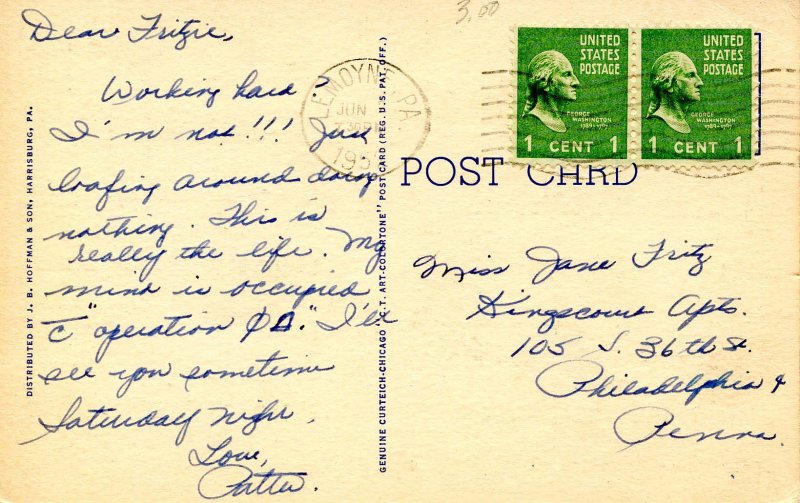 3.00
Dear Fritzie,
Working hard?
I'm not!!! Just
loafing around doing
nothing. This is
really the life. My
mind is occupied
c̄ "operation ΦΔ." I'll
see you sometime
Saturday night.
Love,
Patter.
DISTRIBUTED BY J. B. HOFFMAN & SON, HARRISBURG, PA.
GENUINE CURTEICH-CHICAGO "C.T. ART-COLORTONE" POST CARD (REG. U.S. PAT. OFF.)
LEMOYNE, PA.
JUN
195
UNITED
STATES
POSTAGE
GEORGE
WASHINGTON
1789-1797
1 CENT 1
UNITED
STATES
POSTAGE
GEORGE
WASHINGTON
1789-1797
1 CENT 1
POST CARD
Miss Jane Fritz
Kingscourt Apts.
105 S. 36th St.
Philadelphia 4
Penna.